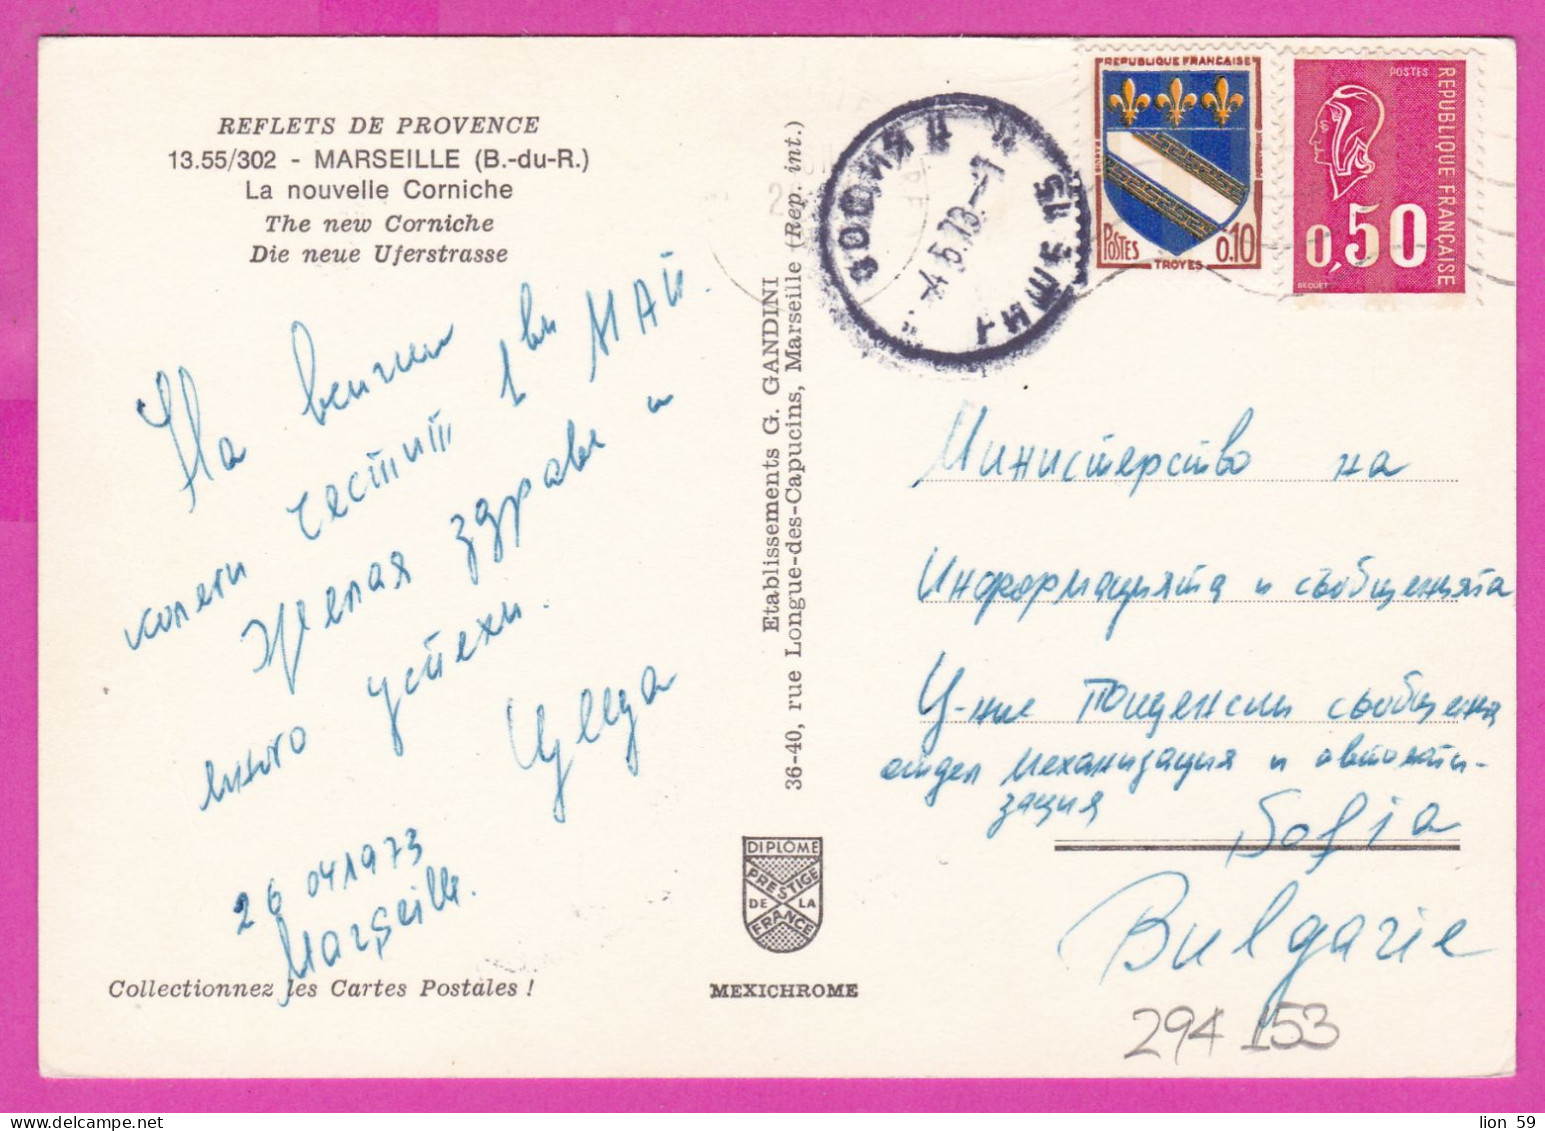 REFLETS DE PROVENCE
13.55/302 - MARSEILLE (B.-du-R.)
La nouvelle Corniche
The new Corniche
Die neue Uferstrasse
На всички
колеги честит 1ви МАЙ.
Желая здраве и
много успехи.
26 04 1973
Marseille.
Collectionnez les Cartes Postales !
Etablissements G. GANDINI
36-40, rue Longue-des-Capucins, Marseille (Rep. int.)
DIPLOME
PRESTIGE
DE LA
FRANCE
MEXICHROME
СОФИЯ
-4.5.73
REPUBLIQUE FRANCAISE
POSTES
0,10
TROYES
POSTES
REPUBLIQUE FRANÇAISE
0,50
BEQUET
Министерство на
Информацията и съобщенията
У-ние Пощенски съобщения
отдел механизация и автомати-
зация
Sofia
Bulgarie
294 153
lion 59